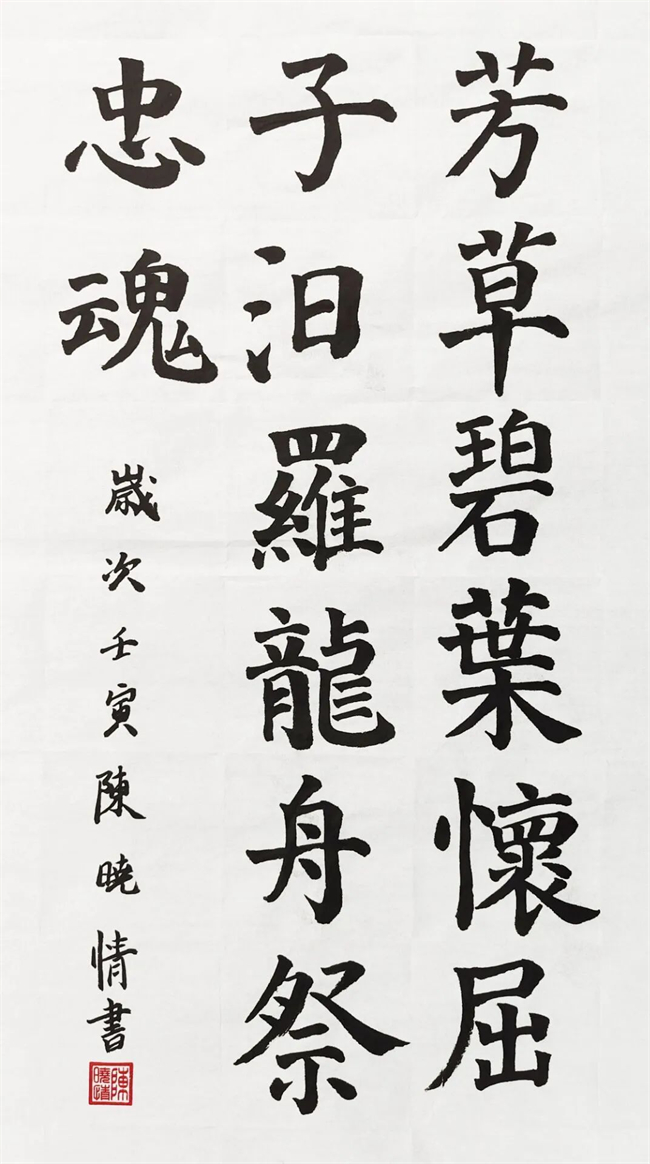 芳草碧葉懷屈
子汨羅龍舟祭
忠魂
歲次壬寅陳曉情書